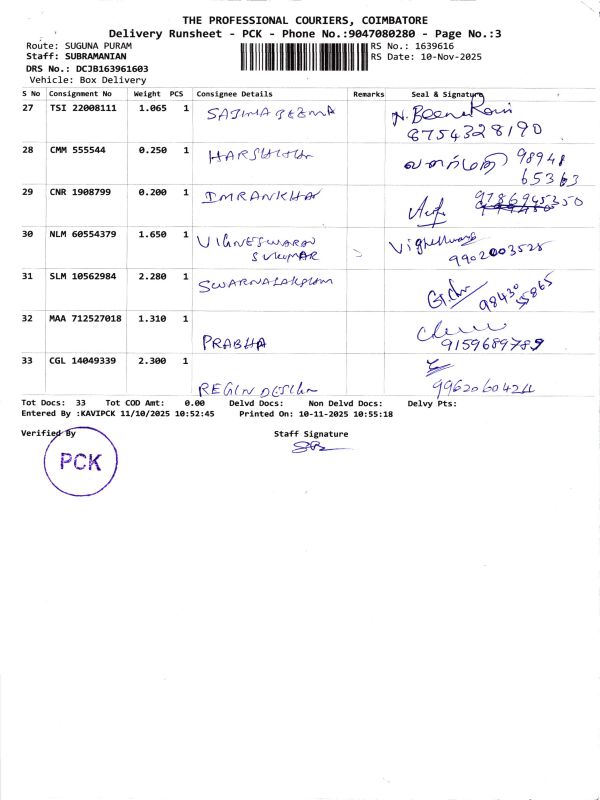 THE PROFESSIONAL COURIERS, COIMBATORE
Delivery Runsheet - PCK - Phone No.:9047080280 - Page No.:3
Route: SUGUNA PURAM
RS No.: 1639616
Staff: SUBRAMANIAN
RS Date: 10-Nov-2025
DRS No.: DCJB163961603
Vehicle: Box Delivery
S No Consignment No Weight PCS Consignee Details Remarks Seal & Signature
27 TSI 22008111 1.065 1
8754328190
28 CMM 555544 0.250 1 98948
65363
29 CNR 1908799 0.200 1 IMRANKHAN
30 NLM 60554379 1.650 1 VIGNESWARAN
SUKUMAR
9902003525
31 SLM 10562984 2.280 1 98430 55865
32 MAA 712527018 1.310 1
PRABHA 9159689789
33 CGL 14049339 2.300 1
REGIN DESIGN 9962060424
Tot Docs: 33 Tot COD Amt: 0.00 Delvd Docs: Non Delvd Docs: Delvy Pts:
Entered By :KAVIPCK 11/10/2025 10:52:45 Printed On: 10-11-2025 10:55:18
Verified By
Staff Signature
PCK